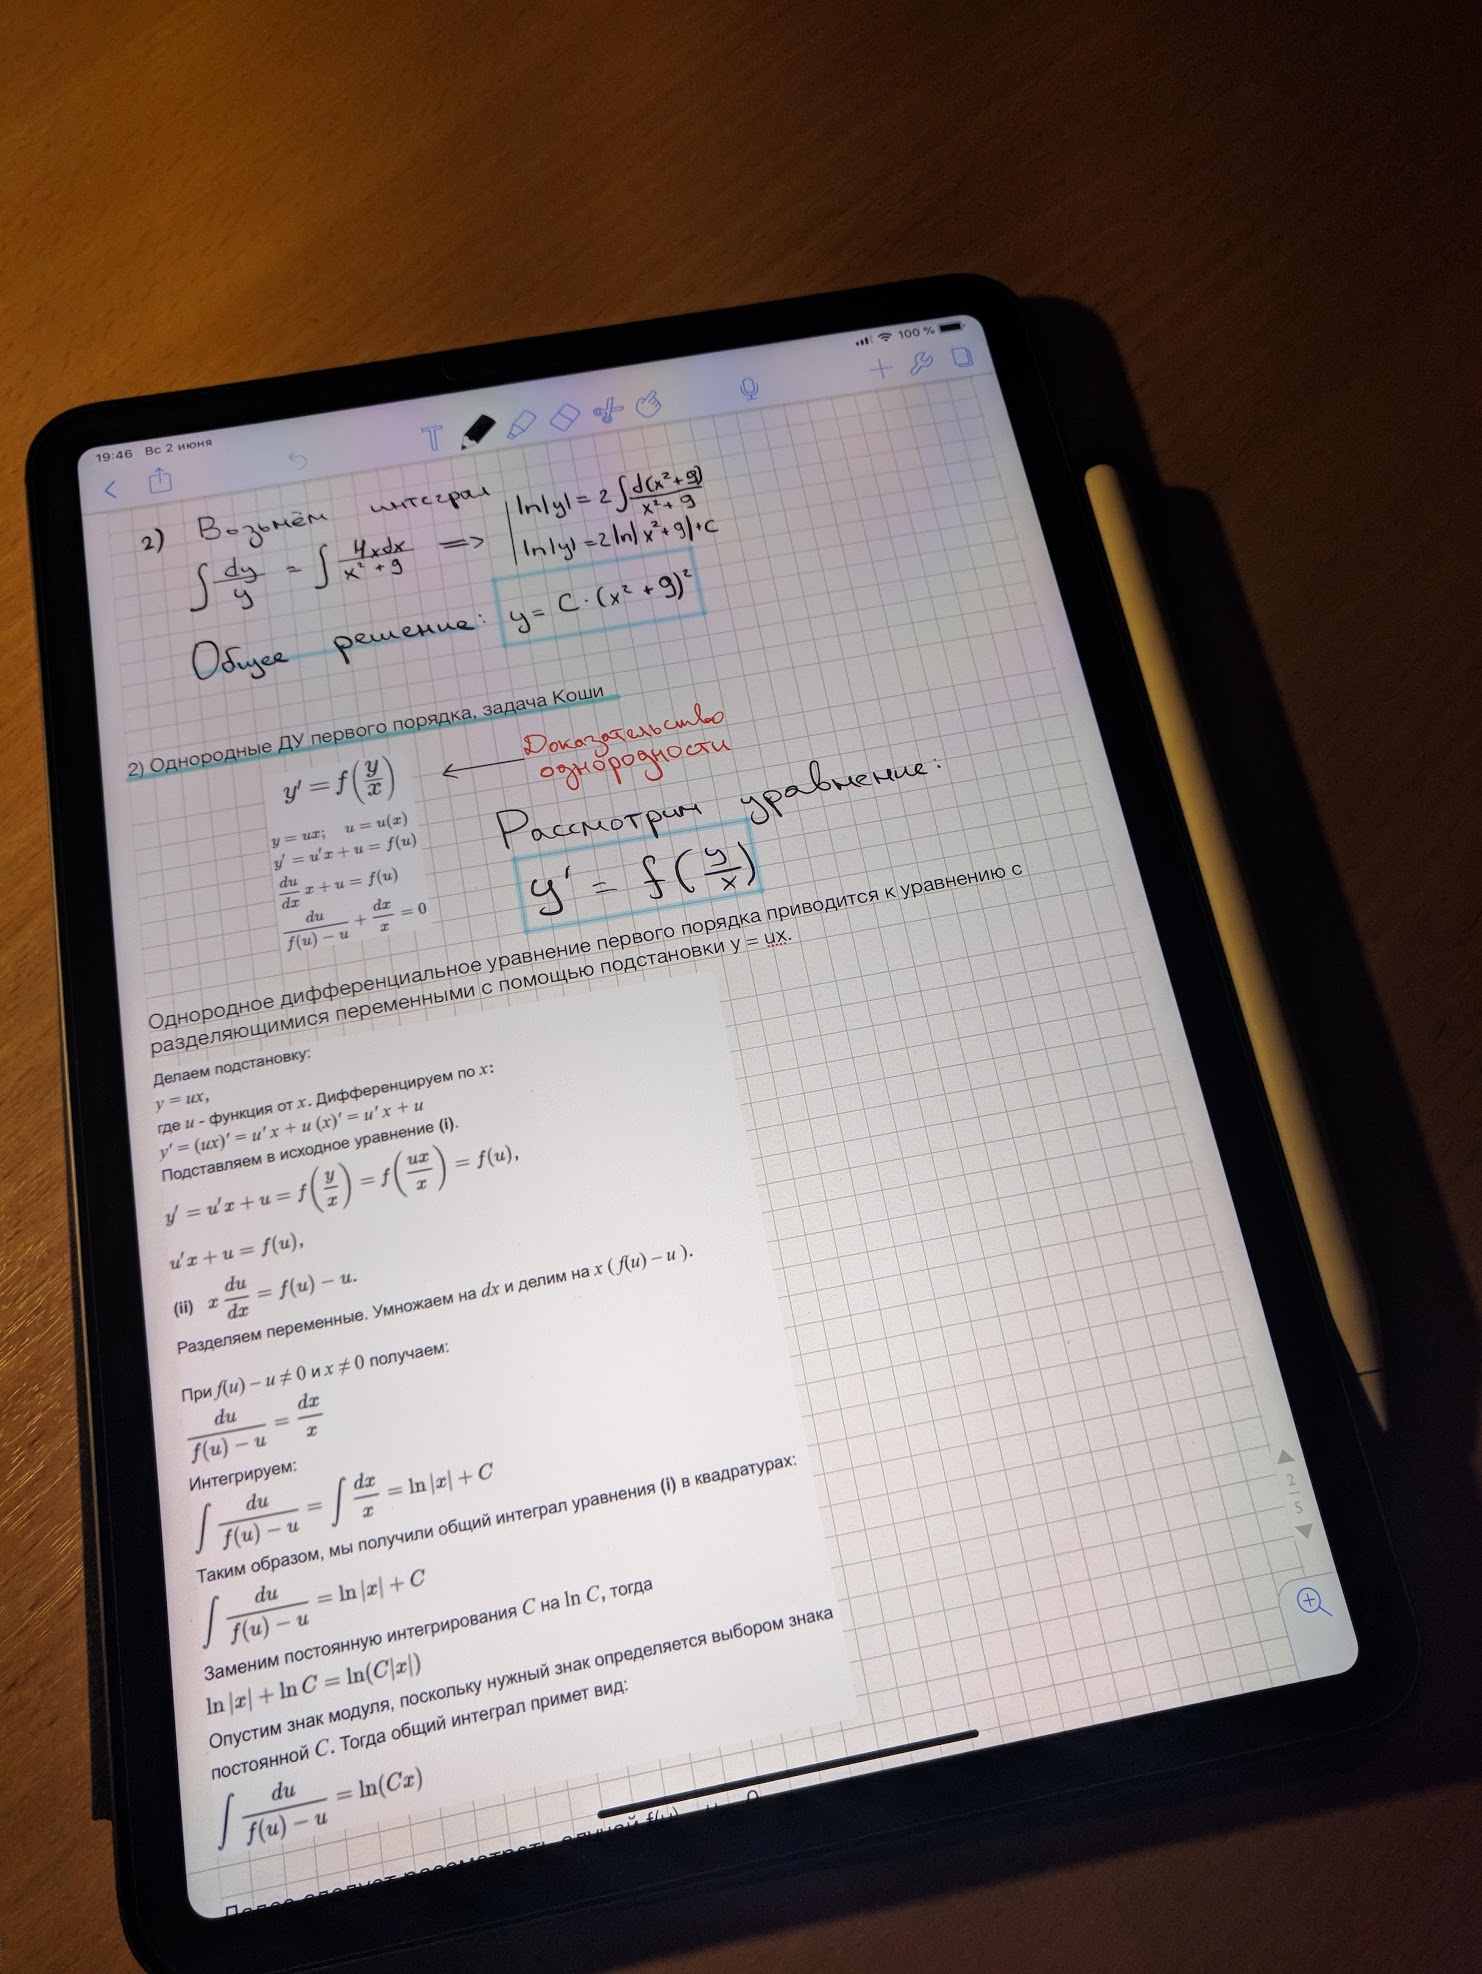 19:46 Вс 2 июня
100 %
2) Возьмём интеграл
∫ dy/y = ∫ 4xdx/(x² + 9) =>
ln|y| = 2 ∫ d(x²+9)/(x²+9)
ln|y| = 2ln|x²+9|+C
Общее решение: y = C·(x² + 9)²
2) Однородные ДУ первого порядка, задача Коши
y′ = f(y/x)
y = ux; u = u(x)
y′ = u′x + u = f(u)
du/dx x + u = f(u)
du/(f(u) − u) + dx/x = 0
Доказательство
однородности
Рассмотрим уравнение:
y′ = f(y/x)
Однородное дифференциальное уравнение первого порядка приводится к уравнению с
разделяющимися переменными с помощью подстановки y = ux.
Делаем подстановку:
y = ux,
где u - функция от x. Дифференцируем по x:
y′ = (ux)′ = u′ x + u (x)′ = u′ x + u
Подставляем в исходное уравнение (i).
y′ = u′x + u = f(y/x) = f(ux/x) = f(u),
u′x + u = f(u),
(ii) x du/dx = f(u) − u.
Разделяем переменные. Умножаем на dx и делим на x ( f(u) − u ).
При f(u) − u ≠ 0 и x ≠ 0 получаем:
du/(f(u) − u) = dx/x
Интегрируем:
∫ du/(f(u) − u) = ∫ dx/x = ln |x| + C
Таким образом, мы получили общий интеграл уравнения (i) в квадратурах:
∫ du/(f(u) − u) = ln |x| + C
Заменим постоянную интегрирования C на ln C, тогда
ln |x| + ln C = ln(C|x|)
Опустим знак модуля, поскольку нужный знак определяется выбором знака
постоянной C. Тогда общий интеграл примет вид:
∫ du/(f(u) − u) = ln(Cx)
2
5